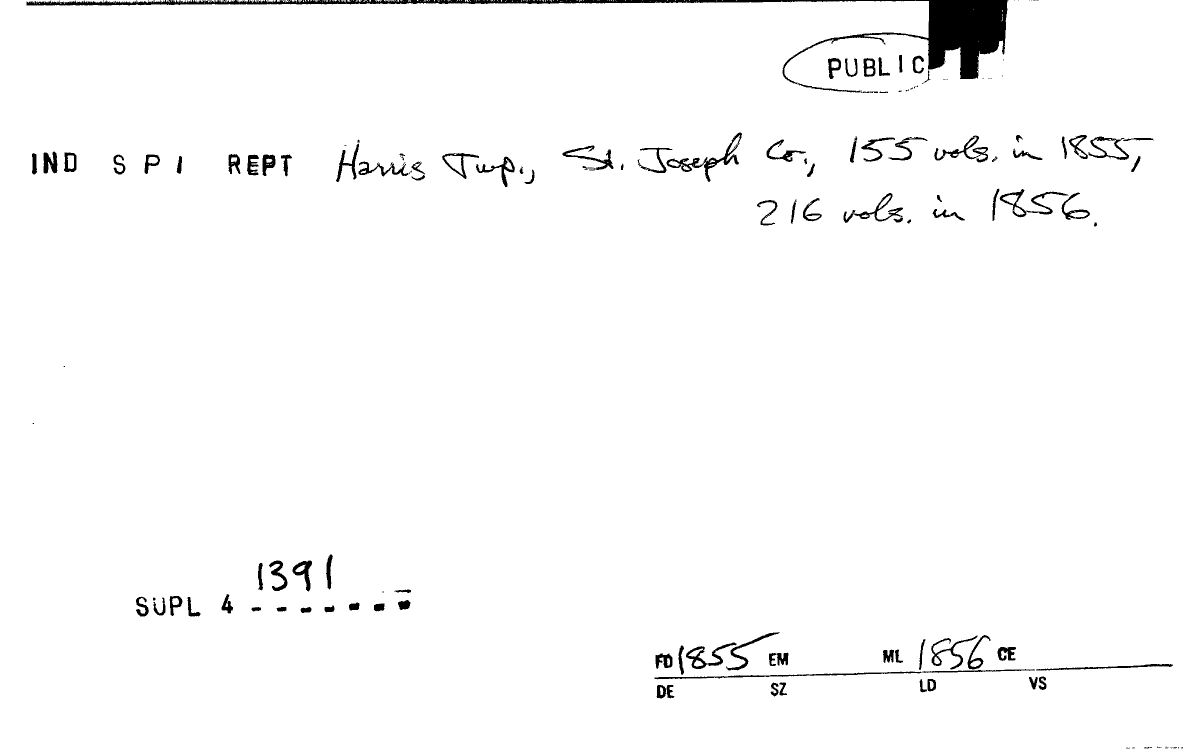 PUBLIC
IND S P I REPT Harris Twp., St. Joseph Co., 155 vols. in 1855,
216 vols. in 1856.
1391
SUPL 4 - - - - - - -
FD 1855 EM ML 1856 CE
DE SZ LD VS